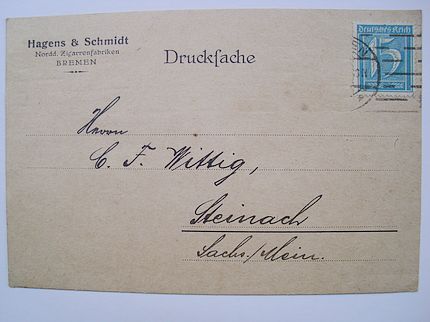 Hagens & Schmidt
Nordd. Zigarrenfabriken
BREMEN
Druckſache
Deutsches Reich
15
Herrn
C. F. Wittig,
Steinach
Sachs./Mein.